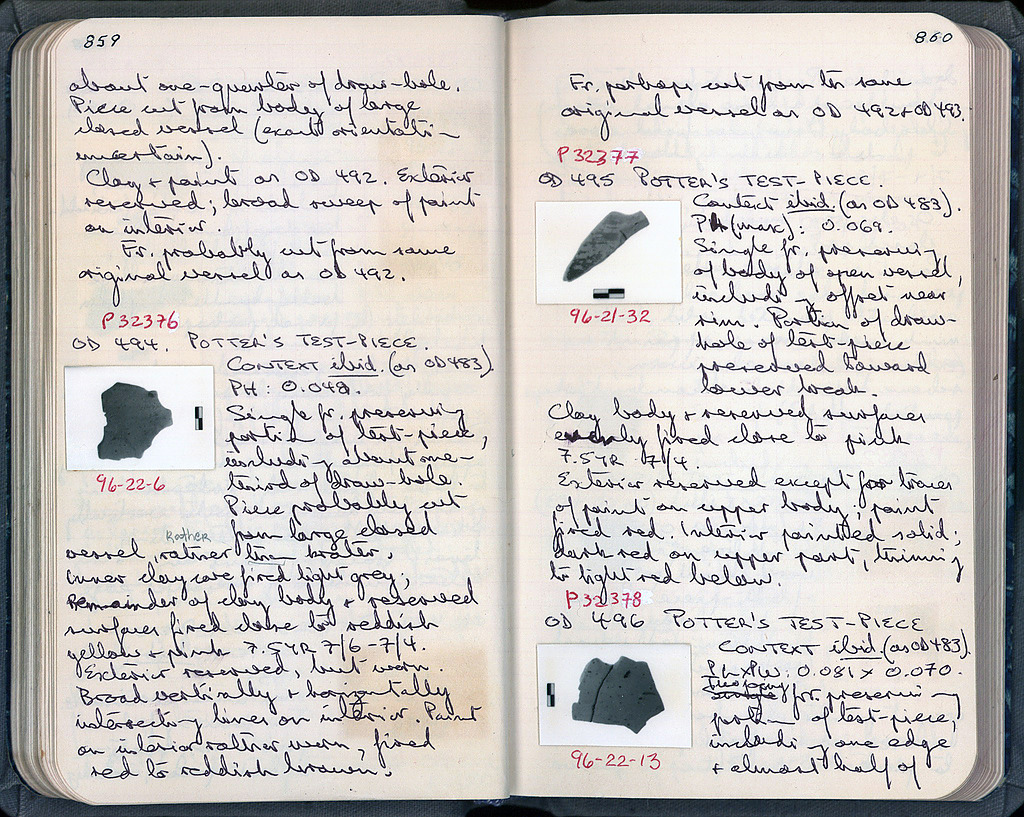 859
about one-quarter of draw-hole.
Piece cut from body of large
closed vessel (exact orientati-
uncertain).
Clay + paint as OD 492. Exterior
reserved; broad sweep of paint
on interior.
Fr. probably cut from same
original vessel as OD 492.
P32376
OD 494. POTTER'S TEST-PIECE.
CONTEXT ibid. (as OD 483).
PH: 0.048.
Single fr. preserving
portion of test-piece,
including about one-
third of draw-hole.
Piece probably cut
from large closed
Rather
vessel, rather than krater.
Inner clay core fired light grey;
Remainder of clay body + reserved
surfaces fired close to reddish
yellow + pink 7.5YR 7/6-7/4.
Exterior reserved, but worn.
Broad vertically + horizontally
intersecting lines on interior. Paint
on interior rather worn, fired
red to reddish brown.
96-22-6
860
Fr. perhaps cut from the same
original vessel as OD 492 + OD 493.
P32377
OD 495 POTTER'S TEST-PIECE.
Context ibid. (as OD 483).
PH (max): 0.069.
Single fr. preserving
of body of open vessel,
including offset near
rim. Portion of draw-
hole of test-piece
preserved toward
lower break.
96-21-32
Clay body + reserved surfaces
evenly fired close to pink
7.5YR 7/4.
Exterior reserved except for traces
of paint on upper body; paint
fired red. Interior painted solid;
dark red on upper part, thinning
to light red below.
P32378
OD 496 POTTER'S TEST-PIECE
CONTEXT ibid. (as OD 483).
PH x PW: 0.081 x 0.070.
Two joining
single fr. preserving
portion of test-piece,
including one edge
+ almost half of
96-22-13